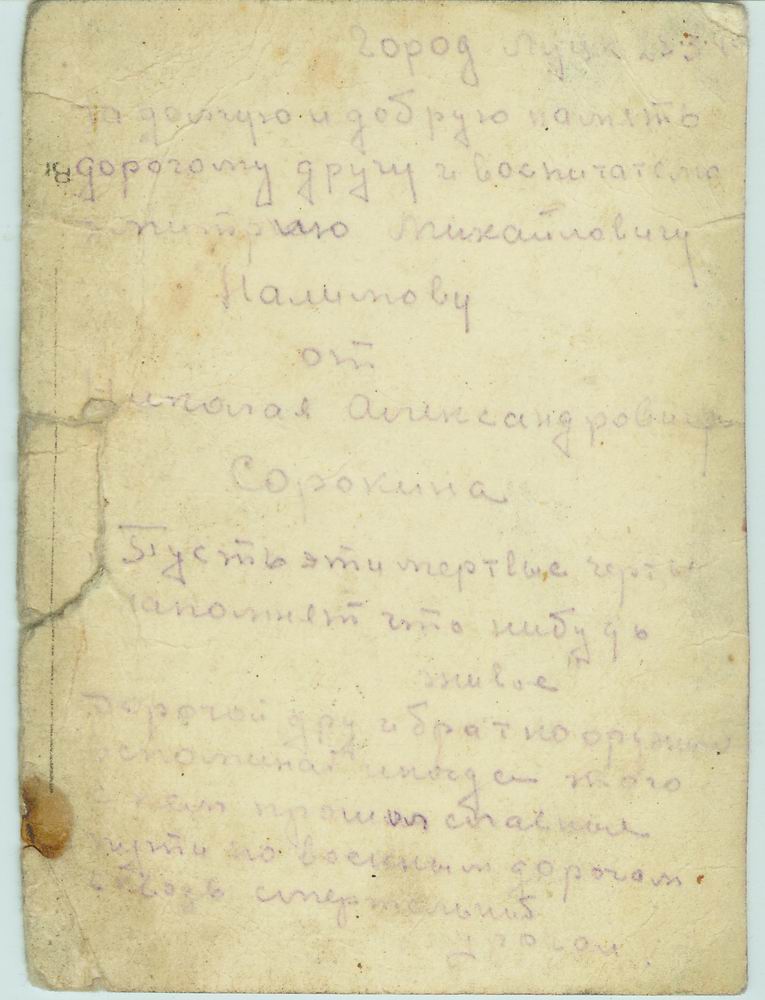 Город Луцк
на долгую и добрую память
дорогому другу и воспитателю
Дмитрию Михайловичу
Налимову
от
Николая Александровича
Сорокина
Пусть эти мертвые черты
напомнят что нибудь
живое
Дорогой друг и брат по оружию
вспоминай иногда того
с кем прошел славные
пути по военным дорогам
смертельных
угрозам.